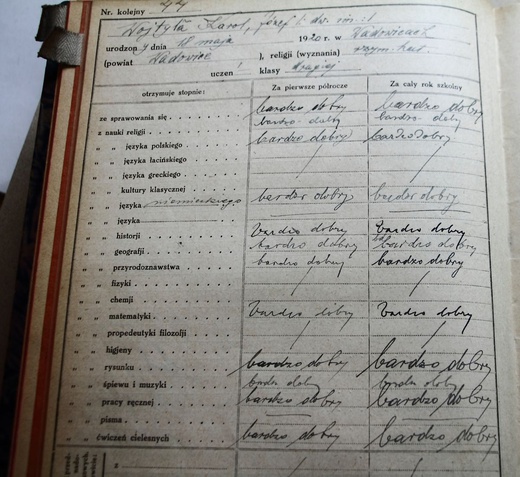 Nr. kolejny 44
Wojtyła Karol, Józef
urodzony dnia 18 maja 1920 r. w Wadowicach
(powiat Wadowice ), religii (wyznania) rzym. kat.
uczeń klasy drugiej
otrzymuje stopnie: Za pierwsze półrocze Za cały rok szkolny
ze sprawowania się bardzo dobry bardzo dobry
z nauki religii bardzo dobry bardzo dobry
" " języka polskiego bardzo dobry bardzo dobry
" " języka łacińskiego
" " języka greckiego
" " kultury klasycznej
" " języka niemieckiego bardzo dobry bardzo dobry
" " języka
" " historji bardzo dobry bardzo dobry
" " geografji bardzo dobry bardzo dobry
" " przyrodoznawstwa bardzo dobry bardzo dobry
" " fizyki
" " chemji
" " matematyki bardzo dobry bardzo dobry
" " propedeutyki filozofji
" " higjeny
" " rysunku bardzo dobry bardzo dobry
" " śpiewu i muzyki bardzo dobry bardzo dobry
" " pracy ręcznej bardzo dobry bardzo dobry
" " pisma
" " ćwiczeń cielesnych bardzo dobry bardzo dobry